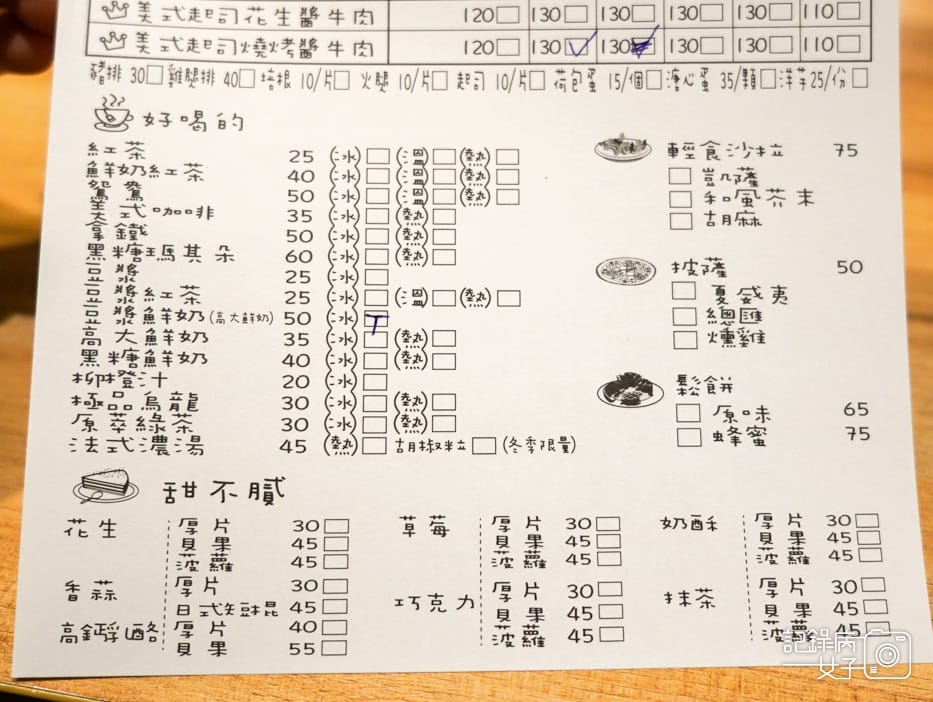 美式起司花生醬牛肉 120□ 130□ 130□ 130□ 130□ 110□
美式起司燒烤醬牛肉 120□ 130□ 130□ 130□ 130□ 110□
豬排 30□ 雞腿排 40□ 培根 10/片□ 火腿 10/片□ 起司 10/片□ 荷包蛋 15/個□ 溏心蛋 35/顆□ 洋芋25/份□
好喝的
紅茶 25 (冰)□(溫)□(熱)□
鮮奶紅茶 40 (冰)□(溫)□(熱)□
鴛鴦 50 (冰)□(溫)□(熱)□
美式咖啡 35 (冰)□(熱)□
拿鐵 50 (冰)□(熱)□
黑糖瑪其朵 60 (冰)□(熱)□
豆漿 25 (冰)□
豆漿紅茶 25 (冰)□(溫)□(熱)□
豆漿鮮奶(高大鮮奶) 50 (冰)□
高大鮮奶 35 (冰)□(熱)□
黑糖鮮奶 40 (冰)□(熱)□
柳橙汁 20 (冰)□
極品烏龍 30 (冰)□(熱)□
原萃綠茶 30 (冰)□(熱)□
法式濃湯 45 (熱)□ 胡椒粒□(冬季限量)
輕食沙拉 75
□ 凱薩
□ 和風芥末
□ 胡麻
披薩 50
□ 夏威夷
□ 總匯
□ 燻雞
鬆餅
□ 原味 65
□ 蜂蜜 75
甜不膩
花生 厚片 30□
貝果 45□
菠蘿 45□
香蒜 厚片 30□
日式明太子 45□
高鈣乳酪 厚片 40□
貝果 55□
草莓 厚片 30□
貝果 45□
菠蘿 45□
巧克力 厚片 30□
貝果 45□
菠蘿 45□
奶酥 厚片 30□
貝果 45□
菠蘿 45□
抹茶 厚片 30□
貝果 45□
菠蘿 45□
記錄肉女子